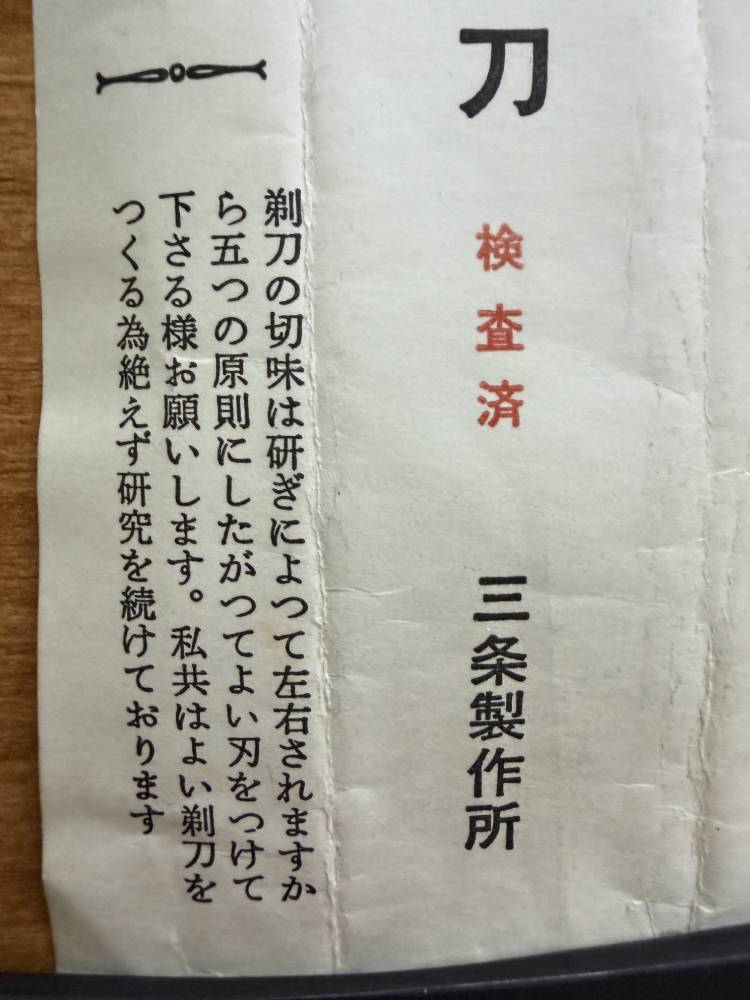 刀
検査済
三条製作所
剃刀の切味は研ぎによつて左右されますか
ら五つの原則にしたがつてよい刃をつけて
下さる様お願いします。私共はよい剃刀を
つくる為絶えず研究を続けております